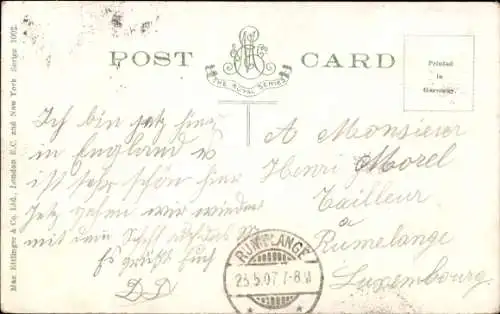 Max Ettlinger & Co. Ltd., London E.C. and New York Series 1002.
POST CARD
THE ROYAL SERIES
Printed
in
Germany.
Ich bin jetz hier
in England
ist sehr schön hier
Jetz gehen wir wieder
mit dem Schiff
Es grüßt Euch
A Monsieur
Henri Morel
Tailleur
a
Rumelange
Luxembourg
RÜMELANGE
23.5.07 7-8